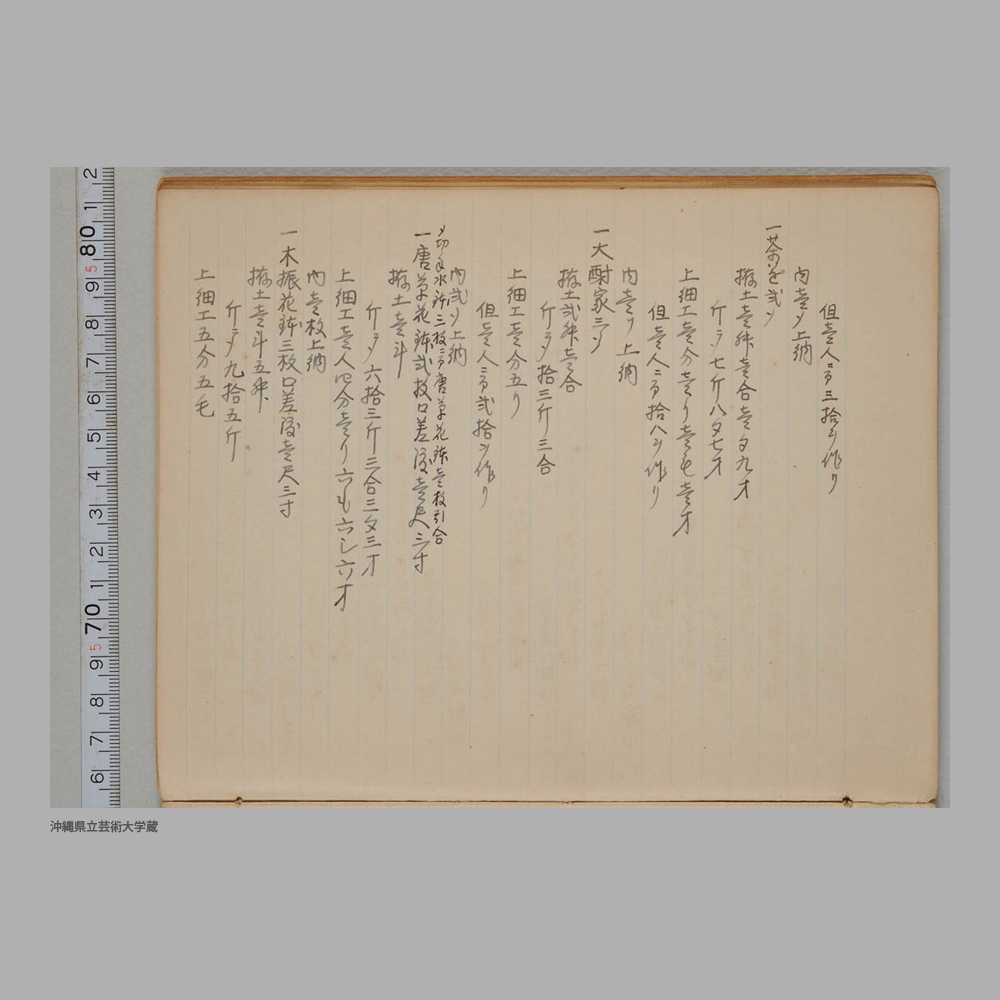 但壱人ニ而三拾ヲ作リ
内壱ツ上納
一茶を弐ツ
拵土壱舛壱合壱夕九才
斤ニシテ七斤八夕七才
上細工壱分壱リ壱毛壱才
但壱人ニ而拾八ヲ作リ
内壱ツ上納
一大酎家三ツ
拵土弐舛壱合
斤ニシテ拾三斤三合
上細工壱分五リ
但壱人ニ而弐拾ヲ作リ
内弐ツ上納
〆切手水鉢三枚ニ而唐草花鉢壱枚引合
一唐草花鉢弐枚口差渡壱尺三寸
拵土壱斗
斤ニシテ六拾三斤三合三夕三才
上細工壱人四分壱リ六毛六シ六才
内壱枚上納
一木振花鉢三枚口差渡壱尺三寸
拵土壱斗五舛
斤ニシテ九拾五斤
上細工五分五毛
沖縄県立芸術大学蔵
2
1
80
5
9
8
7
6
5
4
3
2
1
70
5
9
8
7
6